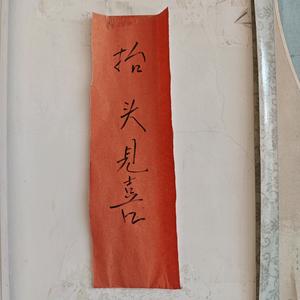 抬头见喜